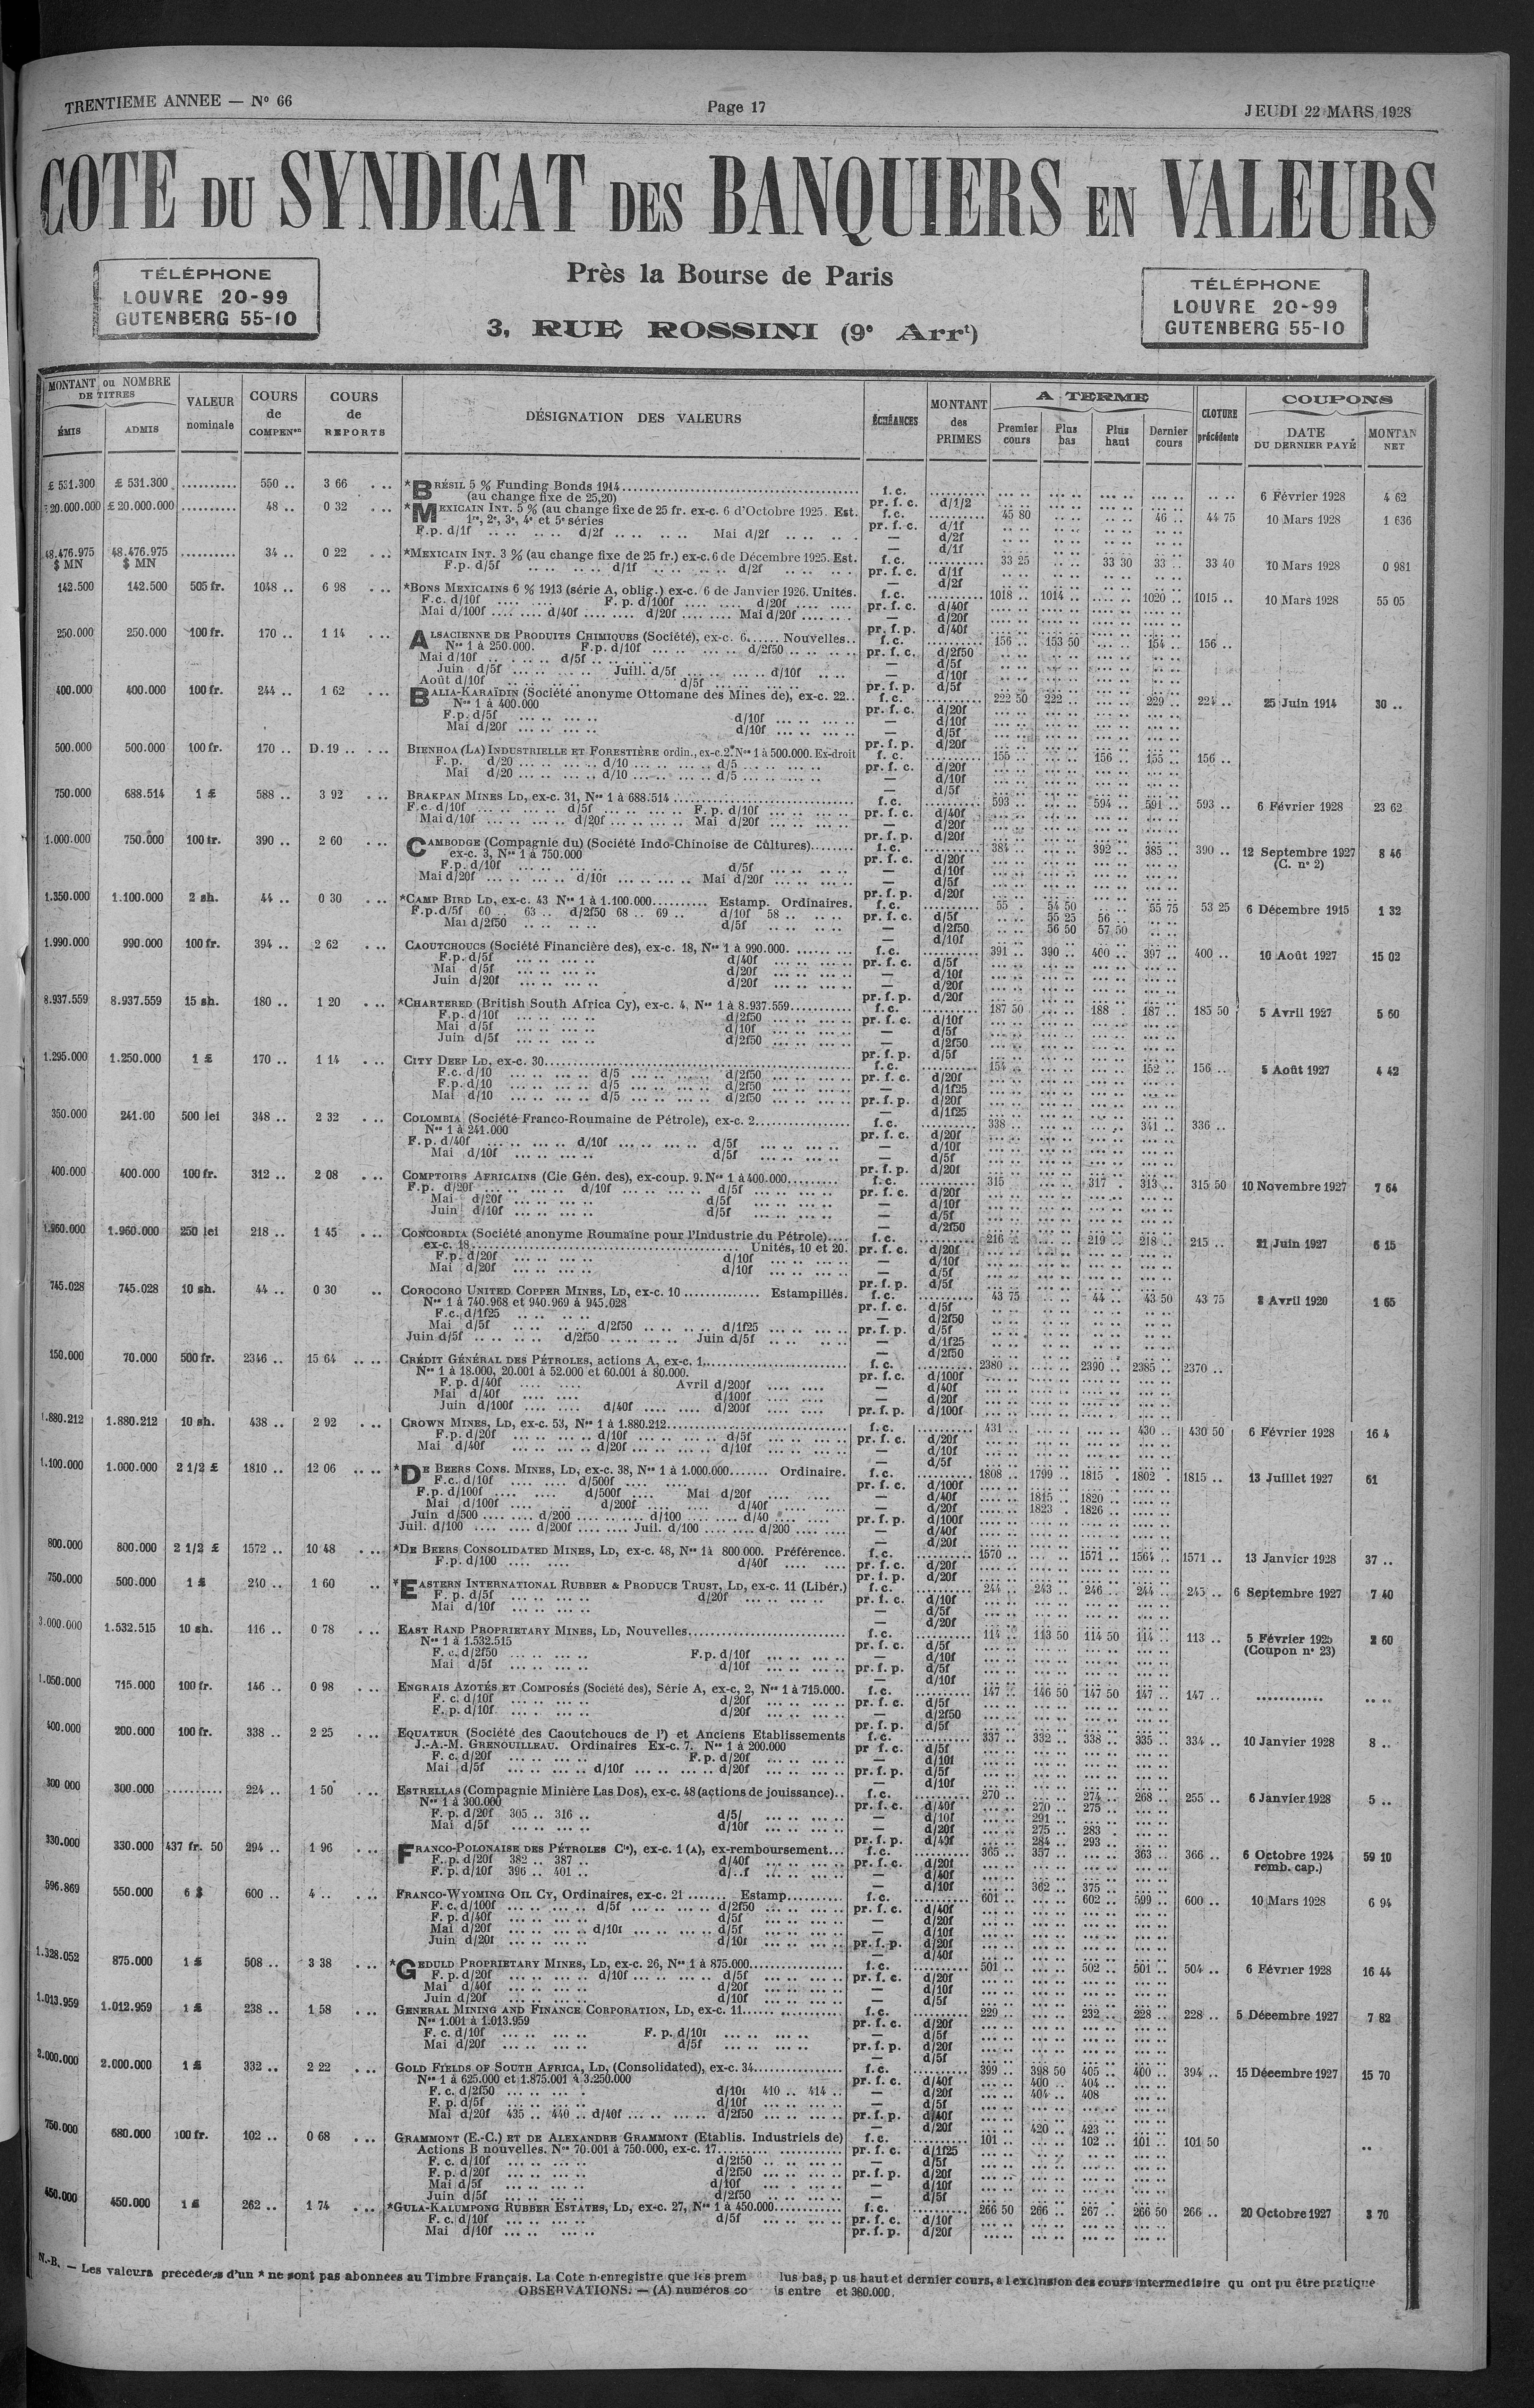 TRENTIEME ANNEE — N° 66
Page 17
JEUDI 22 MARS 1928
COTE DU SYNDICAT DES BANQUIERS EN VALEURS
TÉLÉPHONE
LOUVRE 20-99
GUTENBERG 55-10
Près la Bourse de Paris
3, RUE ROSSINI (9e Arrt)
TÉLÉPHONE
LOUVRE 20-99
GUTENBERG 55-10
MONTANT ou NOMBRE DE TITRES
ÉMIS
ADMIS
VALEUR nominale
COURS de COMPENon
COURS de REPORTS
DÉSIGNATION DES VALEURS
ÉCHÉANCES
MONTANT des PRIMES
A TERME
Premier cours
Plus bas
Plus haut
Dernier cours
CLOTURE précédente
COUPONS
DATE DU DERNIER PAYÉ
MONTAN NET
£ 531.300 £ 531.300 .......... 550 .. 3 66 *BRÉSIL 5 % Funding Bonds 1914 f. c. 6 Février 1928 4 62
(au change fixe de 25,20) pr. f. c. d/1/2
20.000.000 £ 20.000.000 .......... 48 .. 0 32 *MEXICAIN INT. 5 % (au change fixe de 25 fr. ex-c. 6 d'Octobre 1925. Est. f. c. 45 80 46 .. 44 75 10 Mars 1928 1 636
1re, 2e, 3e, 4e et 5e séries pr. f. c. d/1f
F.p. d/1f d/2f Mai d/2f — d/2f
48.476.975 $ MN 48.476.975 $ MN .......... 34 .. 0 22 *MEXICAIN INT. 3 % (au change fixe de 25 fr.) ex-c. 6 de Décembre 1925. Est. f. c. 33 25 33 30 33 .. 33 40 10 Mars 1928 0 981
F.p. d/5f d/1f d/2f pr. f. c. d/1f
142.500 142.500 505 fr. 1048 .. 6 98 *BONS MEXICAINS 6 % 1913 (série A, oblig.) ex-c. 6 de Janvier 1926. Unités. f. c. 1018 .. 1014 .. 1020 .. 1015 .. 10 Mars 1928 55 05
F.c. d/10f F. p. d/100f d/20f pr. f. c. d/40f
Mai d/100f d/40f d/20f Mai d/20f — d/20f
250.000 250.000 100 fr. 170 .. 1 14 ALSACIENNE DE PRODUITS CHIMIQUES (Société), ex-c. 6 Nouvelles.. f. c. 156 .. 153 50 154 .. 156 ..
Nos 1 à 250.000. F.p. d/10f d/2f50 pr. f. c. d/2f50
Mai d/10f d/5f — d/5f
Juin d/5f Juill. d/5f d/10f — d/10f
Août d/10f d/5f pr. f. p. d/5f
400.000 400.000 100 fr. 244 .. 1 62 BALIA-KARAÏDIN (Société anonyme Ottomane des Mines de), ex-c. 22.. f. c. 222 50 222 .. 229 .. 224 .. 25 Juin 1914 30 ..
Nos 1 à 400.000 pr. f. c. d/20f
F.p. d/5f d/10f — d/10f
Mai d/20f d/10f — d/5f
500.000 500.000 100 fr. 170 .. D. 19 .. BIENHOA (LA) INDUSTRIELLE ET FORESTIÈRE ordin., ex-c. 2. Nos 1 à 500.000. Ex-droit f. c. 155 .. 156 .. 155 .. 156 ..
F. p. d/20 d/10 d/5 pr. f. c. d/20f
Mai d/20 d/10 d/5 — d/10f
750.000 688.514 1 £ 588 .. 3 92 BRAKPAN MINES LD, ex-c. 31, Nos 1 à 688.514 f. c. 593 .. 594 .. 591 .. 593 .. 6 Février 1928 23 62
F.c. d/10f d/5f F. p. d/10f pr. f. c. d/40f
Mai d/10f d/20f Mai d/20f — d/20f
1.000.000 750.000 100 fr. 390 .. 2 60 CAMBODGE (Compagnie du) (Société Indo-Chinoise de Cultures) f. c. 384 .. 392 .. 385 .. 390 .. 12 Septembre 1927 (C. n° 2) 8 46
ex-c. 3, Nos 1 à 750.000 pr. f. c. d/20f
F.p. d/10f d/5f — d/10f
Mai d/20f d/10f Mai d/20f — d/5f
1.350.000 1.100.000 2 sh. 44 .. 0 30 *CAMP BIRD LD, ex-c. 43 Nos 1 à 1.100.000 Estamp. Ordinaires. f. c. 55 .. 54 50 55 75 53 25 6 Décembre 1915 1 32
F.p. d/5f 60 .. 63 .. d/2f50 68 .. 69 .. d/10f 58 .. pr. f. c. d/5f 55 25 56 ..
Mai d/2f50 d/5f — d/2f50 56 50 57 50
1.990.000 990.000 100 fr. 394 .. 2 62 CAOUTCHOUCS (Société Financière des), ex-c. 18, Nos 1 à 990.000. f. c. 391 .. 390 .. 400 .. 397 .. 400 .. 10 Août 1927 15 02
F.p. d/5f d/40f pr. f. c. d/5f
Mai d/5f d/20f — d/10f
Juin d/20f d/20f — d/20f
8.937.559 8.937.559 15 sh. 180 .. 1 20 *CHARTERED (British South Africa Cy), ex-c. 4, Nos 1 à 8.937.559 f. c. 187 50 188 .. 187 .. 185 50 5 Avril 1927 5 60
F.p. d/10f d/2f50 pr. f. c. d/10f
Mai d/5f d/10f — d/5f
Juin d/5f d/2f50 — d/2f50
1.295.000 1.250.000 1 £ 170 .. 1 14 CITY DEEP LD, ex-c. 30 f. c. 154 .. 152 .. 156 .. 5 Août 1927 4 42
F.c. d/10 d/5 d/2f50 pr. f. c. d/20f
F.p. d/10 d/5 d/2f50 — d/1f25
Mai d/10 d/5 d/2f50 pr. f. p. d/20f
350.000 241.00 500 lei 348 .. 2 32 COLOMBIA (Société Franco-Roumaine de Pétrole), ex-c. 2 f. c. 338 .. 341 .. 336 ..
Nos 1 à 241.000 pr. f. c. d/20f
F. p. d/40f d/10f d/5f — d/10f
Mai d/10f d/5f — d/5f
400.000 400.000 100 fr. 312 .. 2 08 COMPTOIRS AFRICAINS (Cie Gén. des), ex-coup. 9. Nos 1 à 400.000 f. c. 315 317 .. 313 .. 315 50 10 Novembre 1927 7 64
F.p. d/20f d/10f d/5f pr. f. c. d/20f
Mai d/20f d/5f — d/10f
Juin d/10f d/5f — d/5f
1.960.000 1.960.000 250 lei 218 .. 1 45 CONCORDIA (Société anonyme Roumaine pour l'Industrie du Pétrole) f. c. 216 .. 219 .. 218 .. 215 .. 21 Juin 1927 6 15
ex-c. 18 Unités, 10 et 20. pr. f. c. d/20f
F. p. d/20f d/10f — d/10f
Mai d/20f d/10f — d/5f
745.028 745.028 10 sh. 44 .. 0 30 COROCORO UNITED COPPER MINES, LD, ex-c. 10 Estampillés. f. c. 43 75 44 .. 43 50 43 75 8 Avril 1920 1 65
Nos 1 à 740.968 et 940.969 à 945.028 pr. f. c. d/5f
F.c. d/1f25 — d/2f50
Mai d/5f d/2f50 d/1f25 pr. f. p. d/5f
Juin d/5f d/2f50 Juin d/5f — d/1f25
150.000 70.000 500 fr. 2346 .. 15 64 CRÉDIT GÉNÉRAL DES PÉTROLES, actions A, ex-c. 1 f. c. 2380 .. 2390 .. 2385 .. 2370 ..
Nos 1 à 18.000, 20.001 à 52.000 et 60.001 à 80.000. pr. f. c. d/100f
F. p. d/40f Avril d/200f — d/40f
Mai d/40f d/100f — d/20f
Juin d/100f d/40f d/200f pr. f. p. d/100f
1.880.212 1.880.212 10 sh. 438 .. 2 92 CROWN MINES, LD, ex-c. 53, Nos 1 à 1.880.212 f. c. 431 .. 430 .. 430 50 6 Février 1928 16 4
F.p. d/20f d/10f d/5f pr. f. c. d/20f
Mai d/40f d/20f d/10f — d/10f
1.100.000 1.000.000 2 1/2 £ 1810 .. 12 06 *DE BEERS CONS. MINES, LD, ex-c. 38, Nos 1 à 1.000.000 Ordinaire. f. c. 1808 .. 1799 .. 1815 .. 1802 .. 1815 .. 13 Juillet 1927 61
F.c. d/10f d/500f pr. f. c. d/100f
F.p. d/100f d/500f Mai d/20f — d/40f 1815 .. 1820 ..
Mai d/100f d/200f d/40f — d/20f 1823 .. 1826 ..
Juin d/500 d/200 d/100 d/40 pr. f. p. d/100f
Juil. d/100 d/200f Juil. d/100 d/200 — d/40f
800.000 800.000 2 1/2 £ 1572 .. 10 48 *DE BEERS CONSOLIDATED MINES, LD, ex-c. 48, Nos 1 à 800.000. Préférence. f. c. 1570 .. 1571 .. 1564 .. 1571 .. 13 Janvier 1928 37 ..
F.p. d/100 d/40f pr. f. c. d/20f
750.000 500.000 1 £ 240 .. 1 60 *EASTERN INTERNATIONAL RUBBER & PRODUCE TRUST, LD, ex-c. 11 (Libér.) f. c. 244 .. 243 .. 246 .. 244 .. 245 .. 6 Septembre 1927 7 40
F. p. d/5f d/20f pr. f. c. d/10f
Mai d/10f — d/5f
3.000.000 1.532.515 10 sh. 116 .. 0 78 EAST RAND PROPRIETARY MINES, LD, Nouvelles f. c. 114 .. 113 50 114 50 114 .. 113 .. 5 Février 1925 (Coupon n° 23) 2 60
Nos 1 à 1.532.515 pr. f. c. d/5f
F. c. d/2f50 F.p. d/10f — d/10f
Mai d/5f d/10f pr. f. p. d/5f
1.050.000 715.000 100 fr. 146 .. 0 98 ENGRAIS AZOTÉS ET COMPOSÉS (Société des), Série A, ex-c, 2, Nos 1 à 715.000. f. c. 147 .. 146 50 147 50 147 .. 147 ..
F. c. d/10f d/20f pr. f. c. d/5f
F. p. d/10f d/20f — d/2f50
400.000 200.000 100 fr. 338 .. 2 25 EQUATEUR (Société des Caoutchoucs de l') et Anciens Etablissements f. c. 337 .. 332 .. 338 .. 335 .. 334 .. 10 Janvier 1928 8 ..
J.-A.-M. GRENOUILLEAU. Ordinaires Ex-c. 7. Nos 1 à 200.000 pr f. c. d/5f
F. c. d/20f F.p. d/20f — d/10f
Mai d/5f d/10f d/20f pr. f. p. d/5f
300 000 300.000 .......... 224 .. 1 50 ESTRELLAS (Compagnie Minière Las Dos), ex-c. 48 (actions de jouissance).. f. c. 270 .. 274 .. 268 .. 255 .. 6 Janvier 1928 5 ..
Nos 1 à 300.000 pr. f. c. d/40f 270 .. 275 ..
F. p. d/20f 305 .. 316 .. d/5/ — d/10f 291 ..
Mai d/5f d/10f — d/20f 275 .. 283 ..
pr. f. p. d/40f 284 .. 293 ..
330.000 330.000 437 fr. 50 294 .. 1 96 FRANCO-POLONAISE DES PÉTROLES Cie), ex-c. 1 (A), ex-remboursement... f. c. 365 .. 357 .. 363 .. 366 .. 6 Octobre 1924 remb. cap.) 59 10
F. p. d/20f 382 .. 387 .. d/40f pr. f. c. d/20f
F. p. d/10f 396 .. 401 .. d/..f — d/40f
— d/10f 362 .. 375 ..
596.869 550.000 6 $ 600 .. 4 .. FRANCO-WYOMING OIL CY, Ordinaires, ex-c. 21 Estamp f. c. 601 .. 602 .. 599 .. 600 .. 10 Mars 1928 6 94
F. c. d/100f d/5f d/2f50 pr. f. c. d/40f
F. p. d/40f d/5f — d/20f
Mai d/20f d/10f d/5f — d/10f
Juin d/20f d/10f pr. f. p. d/20f
1.328.052 875.000 1 £ 508 .. 3 38 *GEDULD PROPRIETARY MINES, LD, ex-c. 26, Nos 1 à 875.000 f. c. 501 .. 502 .. 501 .. 504 .. 6 Février 1928 16 44
F. p. d/20f d/10f d/5f pr. f. c. d/20f
Mai d/40f d/20f — d/10f
Juin d/20f d/10f — d/5f
1.013.959 1.012.959 1 £ 238 .. 1 58 GENERAL MINING AND FINANCE CORPORATION, LD, ex-c. 11 f. c. 229 .. 232 .. 228 .. 228 .. 5 Décembre 1927 7 82
Nos 1.001 à 1.013.959 pr. f. c. d/20f
F. c. d/10f F. p. d/10f — d/5f
Mai d/20f d/5f pr. f. p. d/20f
2.000.000 2.000.000 1 £ 332 .. 2 22 GOLD FIELDS OF SOUTH AFRICA, LD, (Consolidated), ex-c. 34 f. c. 399 .. 398 50 405 .. 400 .. 394 .. 15 Décembre 1927 15 70
Nos 1 à 625.000 et 1.875.001 à 3.250.000 pr. f. c. d/40f 400 .. 404 ..
F. c. d/2f50 d/10f 410 .. 414 .. — d/20f 404 .. 408
F. p. d/5f d/10f — d/5f
Mai d/20f 435 .. 440 .. d/40f d/2f50 pr. f. p. d/40f
— d/20f 420 .. 423 ..
750.000 680.000 100 fr. 102 .. 0 68 GRAMMONT (E.-C.) ET DE ALEXANDRE GRAMMONT (Etablis. Industriels de) f. c. 101 .. 102 .. 101 .. 101 50
Actions B nouvelles. Nos 70.001 à 750.000, ex-c. 17 pr. f. c. d/1f25
F. c. d/10f d/2f50 — d/5f
F. p. d/20f d/2f50 pr. f. p. d/20f
Mai d/5f d/10f — d/10f
Juin d/5f d/2f50 — d/5f
450.000 450.000 1 £ 262 .. 1 74 *GULA-KALUMPONG RUBBER ESTATES, LD, ex-c. 27, Nos 1 à 450.000 f. c. 266 50 266 .. 267 .. 266 50 266 .. 20 Octobre 1927 3 70
F. c. d/10f d/5f pr. f. c. d/10f
Mai d/10f pr. f. p. d/20f
N.-B. — Les valeurs précédées d'un * ne sont pas abonnées au Timbre Français. La Cote n'enregistre que les prem lus bas, p us haut et dernier cours, à l'exclusion des cours intermediaire qu ont pu être pratique
OBSERVATIONS. — (A) numéros co is entre et 380.000.